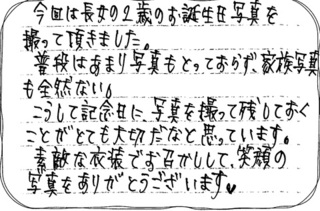 今回は長女の2歳のお誕生日写真を
撮って頂きました。
普段はあまり写真もとっておらず、家族写真
も全然ない。
こうして記念日に、写真を撮って残しておく
ことがとても大切だなと思っています。
素敵な衣装でお召かしして、笑顔の
写真をありがとうございます♥